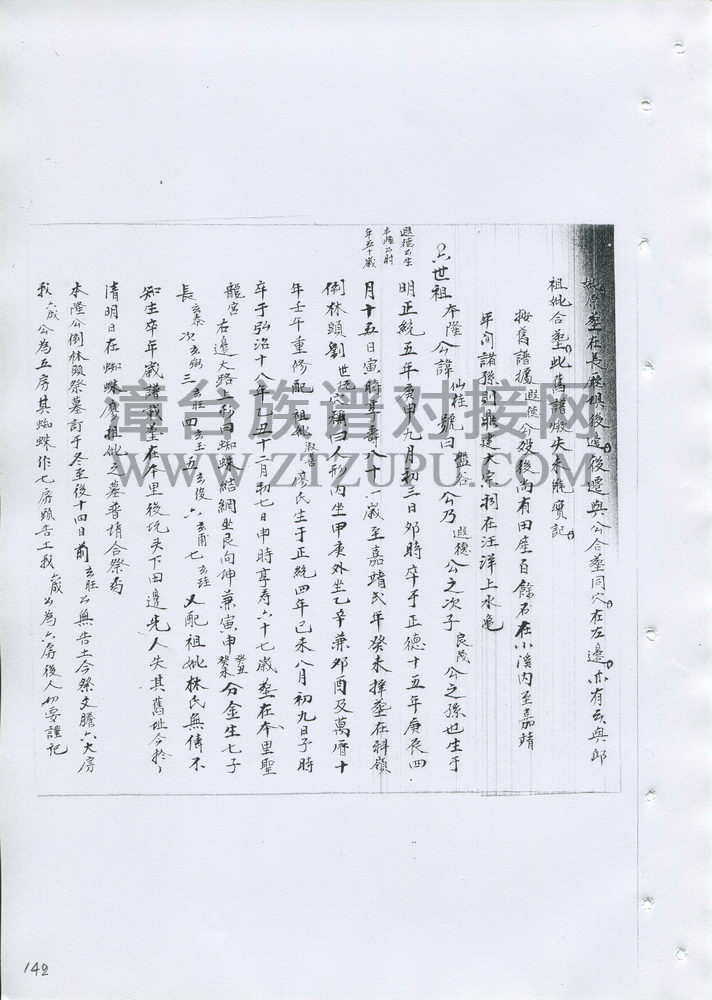 葬在長 後遷與公合葬同穴在左邊亦有云與邱
祖妣合葬此舊譜 失未能實記
按舊譜據遐德公歿後尚有田産百餘石在小溪内至嘉靖
年間諸孫則 建大宗祠在汪洋上水龜
六世祖本隆公諱仙 號曰盤谷公乃遐德公之次子良茂公之孫也生于
遐德公生
本隆公時
年五十歲
明正統五年庚申九月初三日卯時卒于正德十五年庚辰四
月十五日寅時享壽八十一歲至嘉靖弍年癸未擇葬在科嶺
倒林頭劉 穴穪曰人形内坐甲庚外坐乙辛兼卯酉及萬曆十
年壬午重修配祖妣 氏生于正統四年己未八月初九日子時
卒于弘治十八年乙丑十一月初七日申時享寿六十七歲葬在本里聖
龍宮右邊大路 曰蜘蛛結網坐艮向坤兼寅申癸丑癸未分金生七子
長玄泰次玄 三玄旺四玄玉五玄俊六玄甫七玄 又配祖妣林氏無傳不
知生卒年歲譜載葬在本里後坑 下田邊先人失其舊址今於
清明日在蜘蛛 祖妣之墓普請合祭焉
本隆公倒林頭祭墓訂于冬至後十四日前玄旺公無告土合祭文騰六大房
我 歲公為五房其蜘蛛作七房頭告土我 歲公為六房後人切要謹記
漳台族谱对接网
WWW.ZIZUPU.COM
142